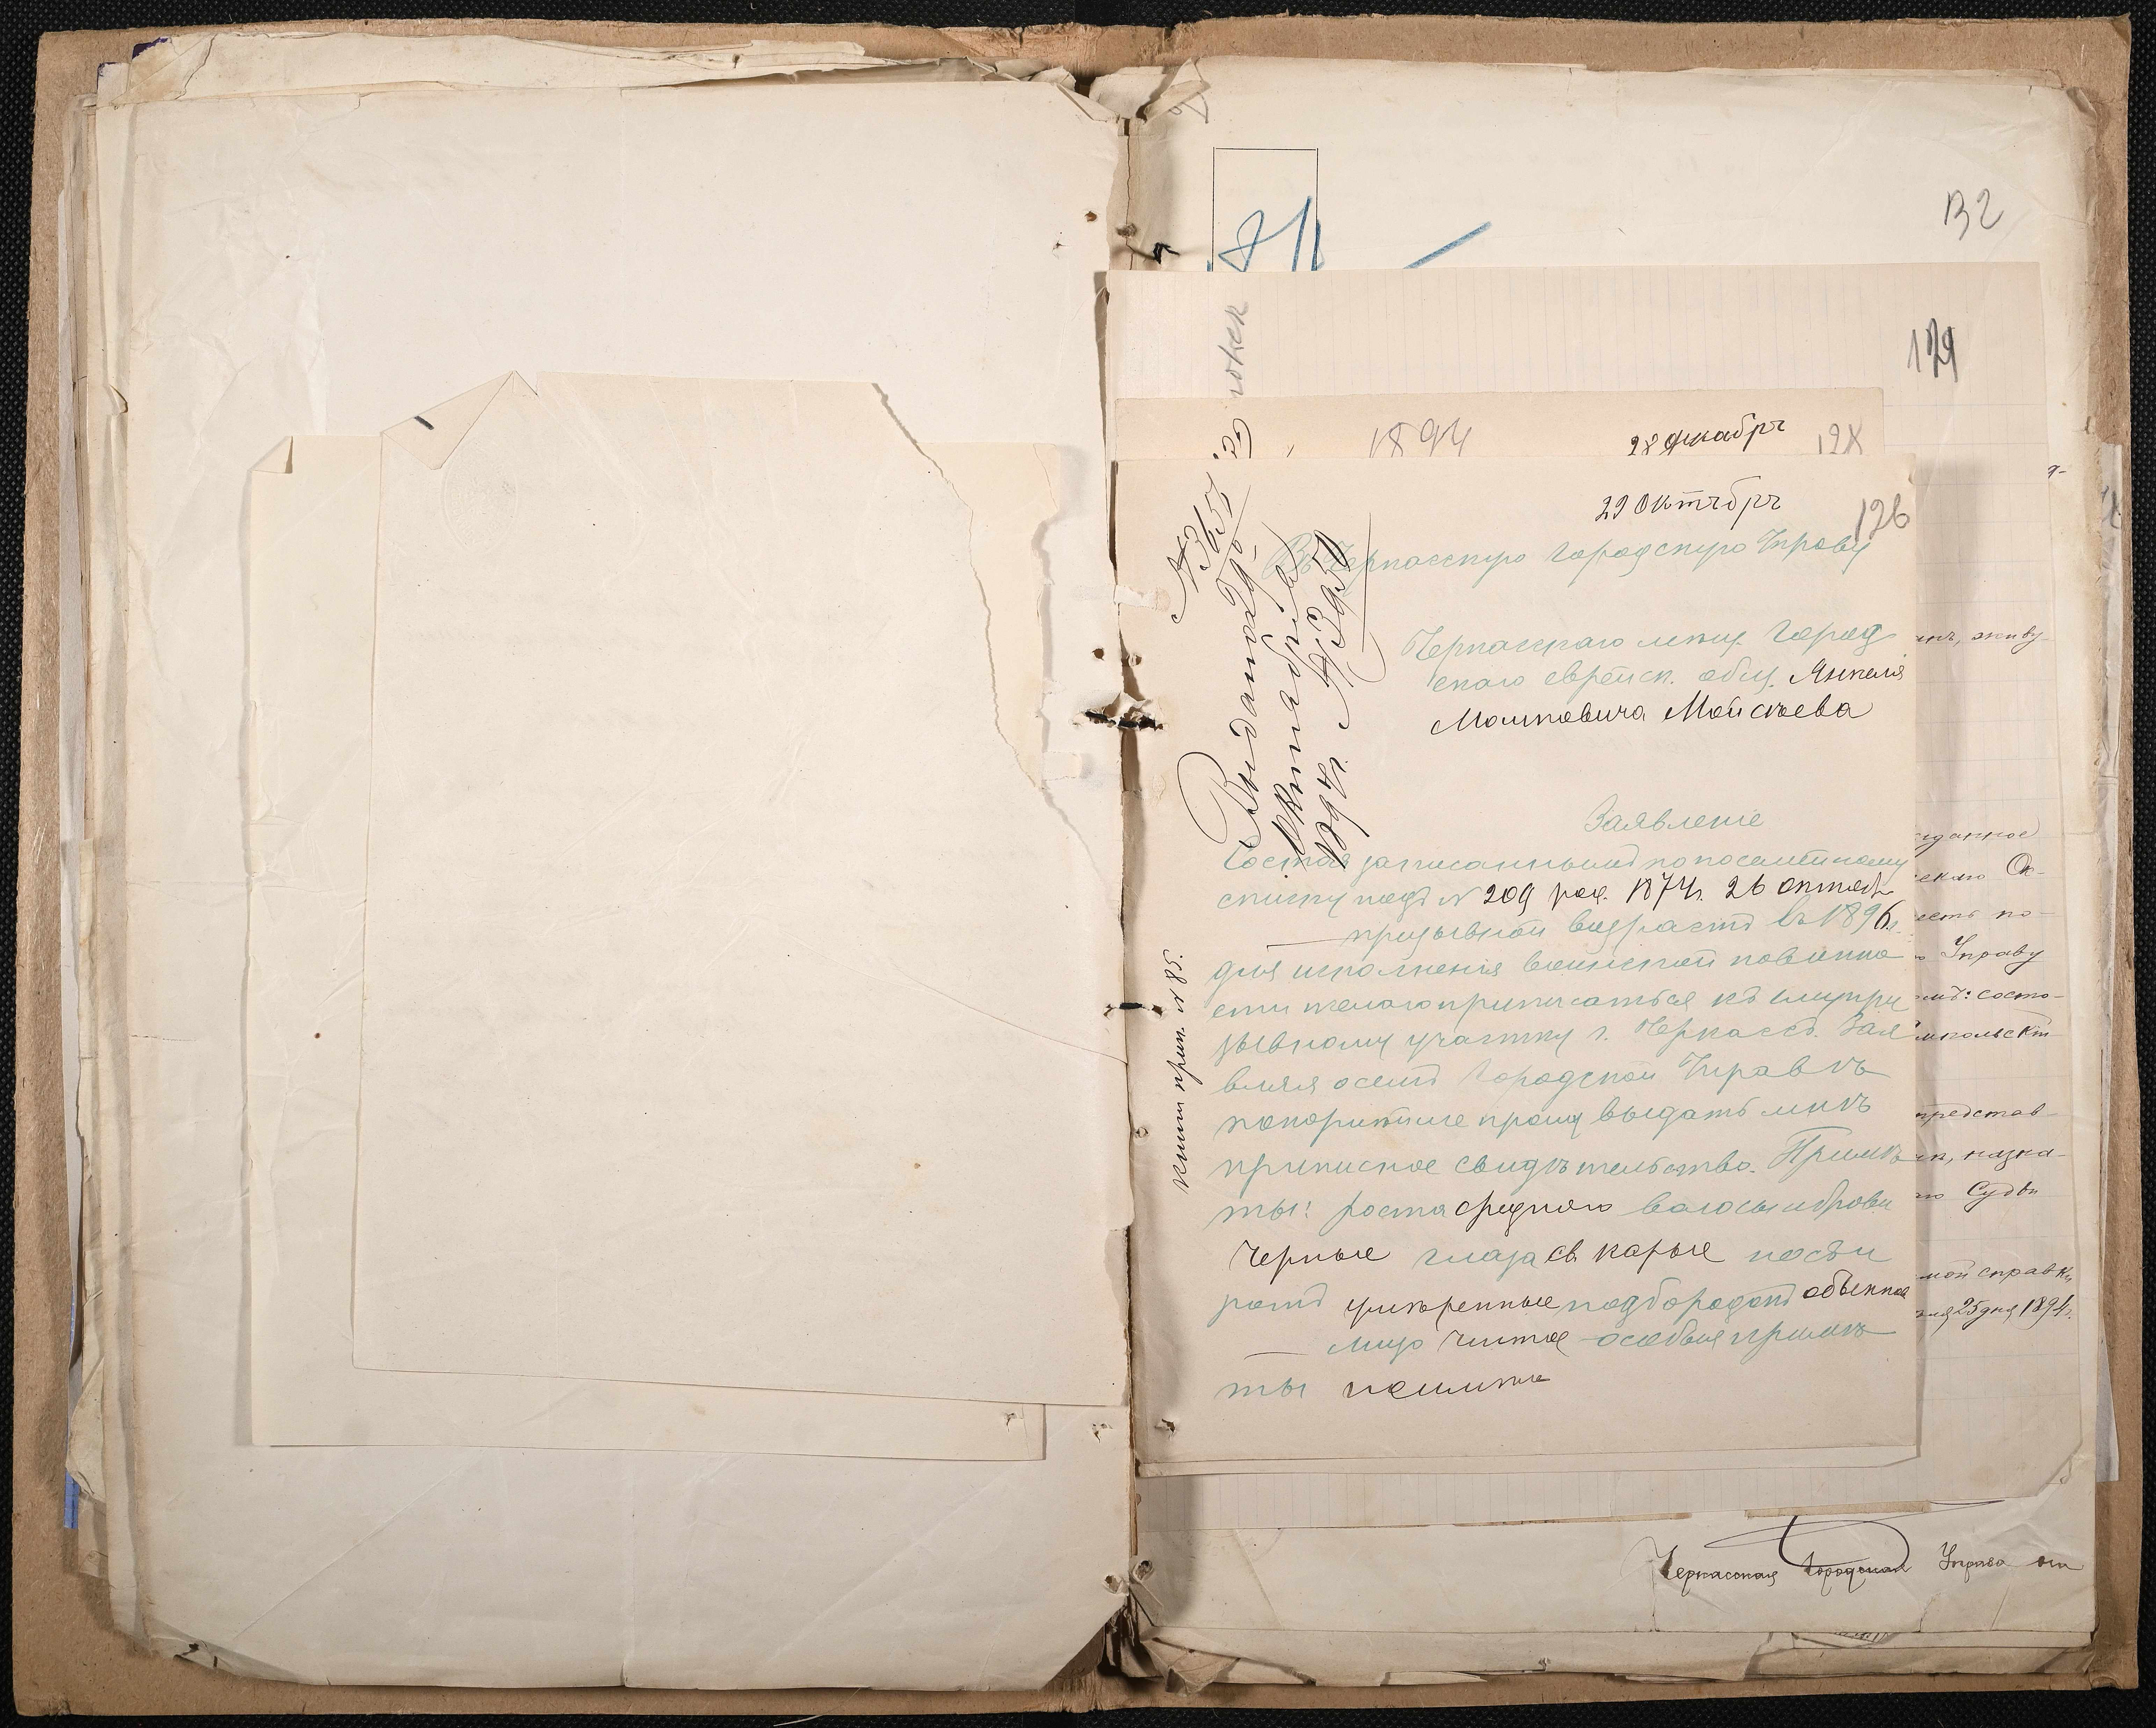 132
129
1894
28 декабря
128
29 Октября
126
Въ Черкасскую Городскую Управу
Черкасскаго мѣщ. Город
скаго еврейск. общ. Янкеля
Мошковича Мойсѣева
Заявленіе
Состоя записаннымъ по посемейному
списку подъ № 209 род. 1874 г. 26 октяб.
призывной возрастъ въ 1896 г.
для исполненія воинской повинно
сти желаю приписаться къ
зывному участку г. Черкассъ. Зая
вляя о семъ Городской Управѣ
покорнѣйше прошу выдать мнѣ
приписное свидѣтельство. Примѣ
ты: роста средняго волосы и брови
черные глаза св. карые носъ и
ротъ умѣренные подбородокъ обыкнов
лицо чистое особыя примѣ
ты
№ 3657
Выдано
октября
1894 г. №
Книги прип. № 85.
живу-
Ок-
по-
Управу
состо-
представ-
Судьи
мой справки
25 дня 1894 г.
Черкасская Городская Управа от